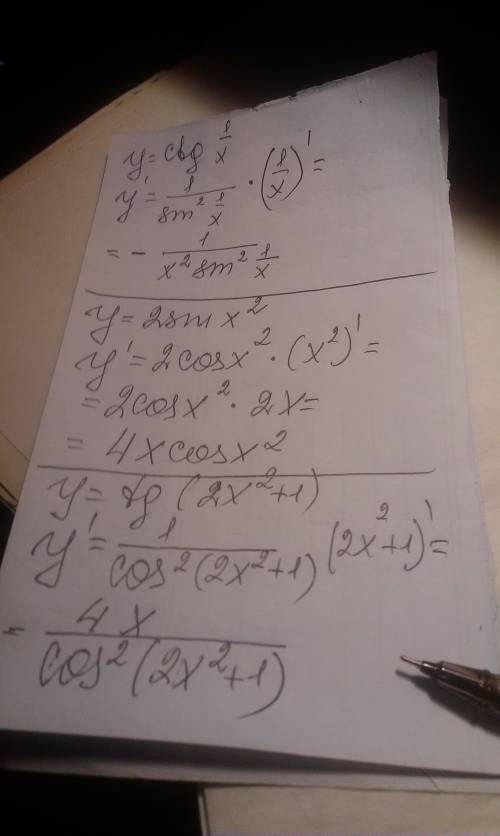 y = ctg 1/x
y' = 1/(sin² 1/x) · (1/x)' =
= - 1/(x² sin² 1/x)
y = 2sin x²
y' = 2cosx² · (x²)' =
= 2cosx² · 2x =
= 4xcosx²
y = tg (2x²+1)
y' = 1/(cos²(2x²+1)) (2x²+1)' =
= 4x/(cos²(2x²+1))